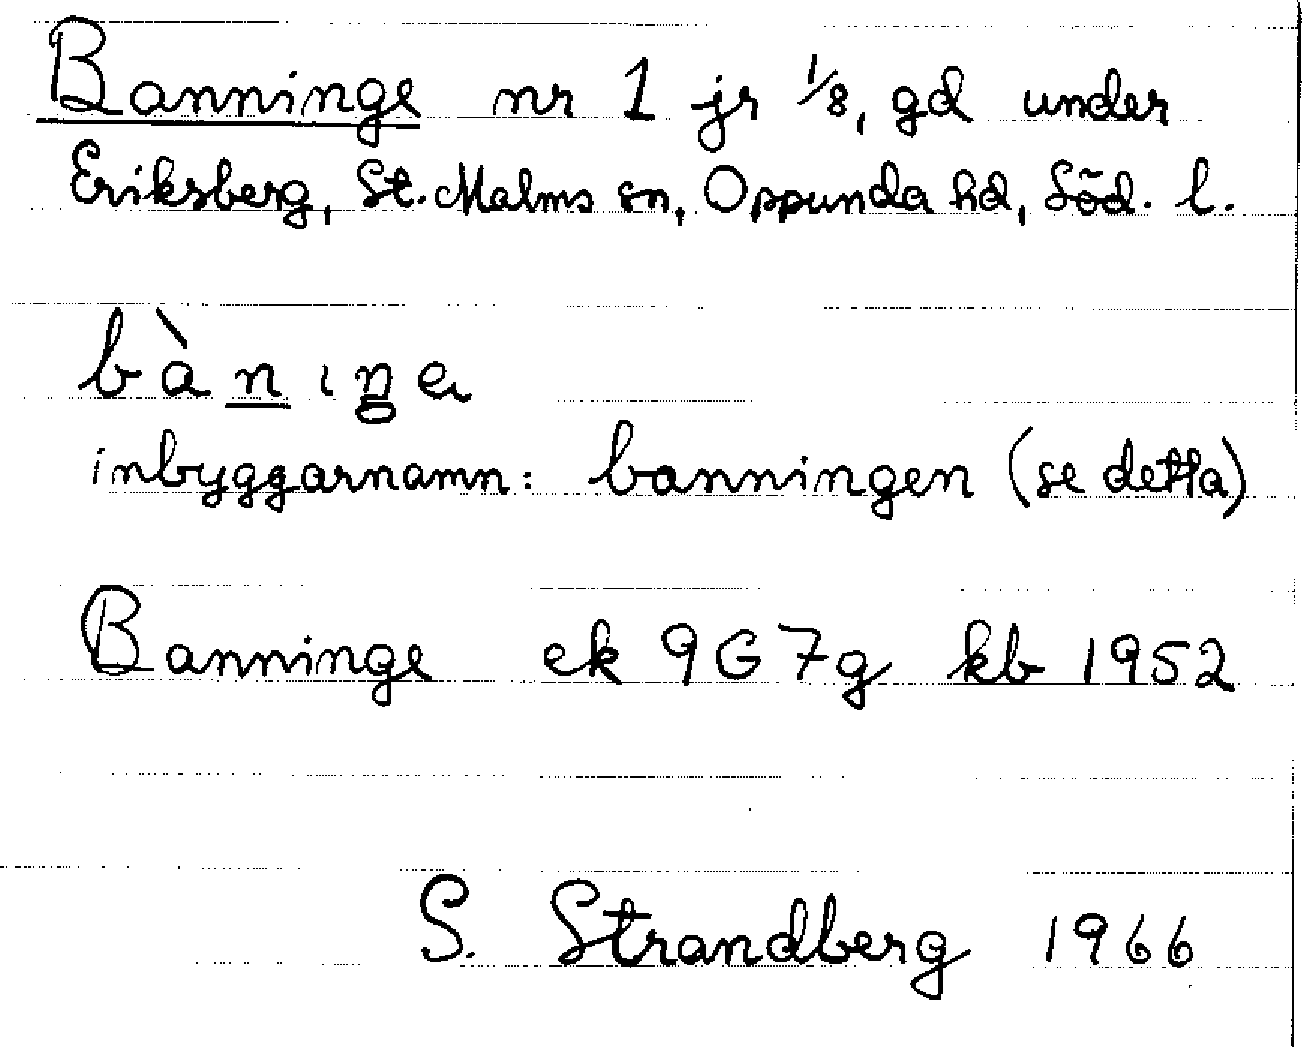 Banninge nr 1 jr 1/8, gd under
Eriksberg, St. Malms sn, Oppunda hd, Söd. l.
bànıŋe
inbyggarnamn: banningen (se detta)
Banninge ek 9G7g kb 1952
S. Strandberg 1966